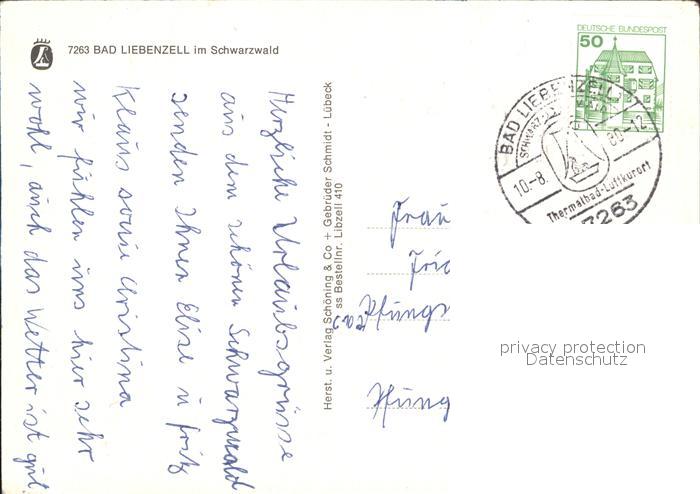 7263 BAD LIEBENZELL im Schwarzwald
Herzliche Urlaubsgrüsse
aus dem schönen Schwarzwald
senden Ihnen Elise u Fritz
Klaus sowie Christina
wir fühlen uns hier sehr
wohl, auch das Wetter ist gut.
Herst. u. Verlag Schöning & Co + Gebrüder Schmidt - Lübeck
ss Bestellnr. Libzell 410
DEUTSCHE BUNDESPOST
50
BAD LIEBENZELL
SCHWARZWALD
10-8. 80-12
Thermalbad-Luftkurort
7263
Frau
Pfungs
Pfung
privacy protection
Datenschutz